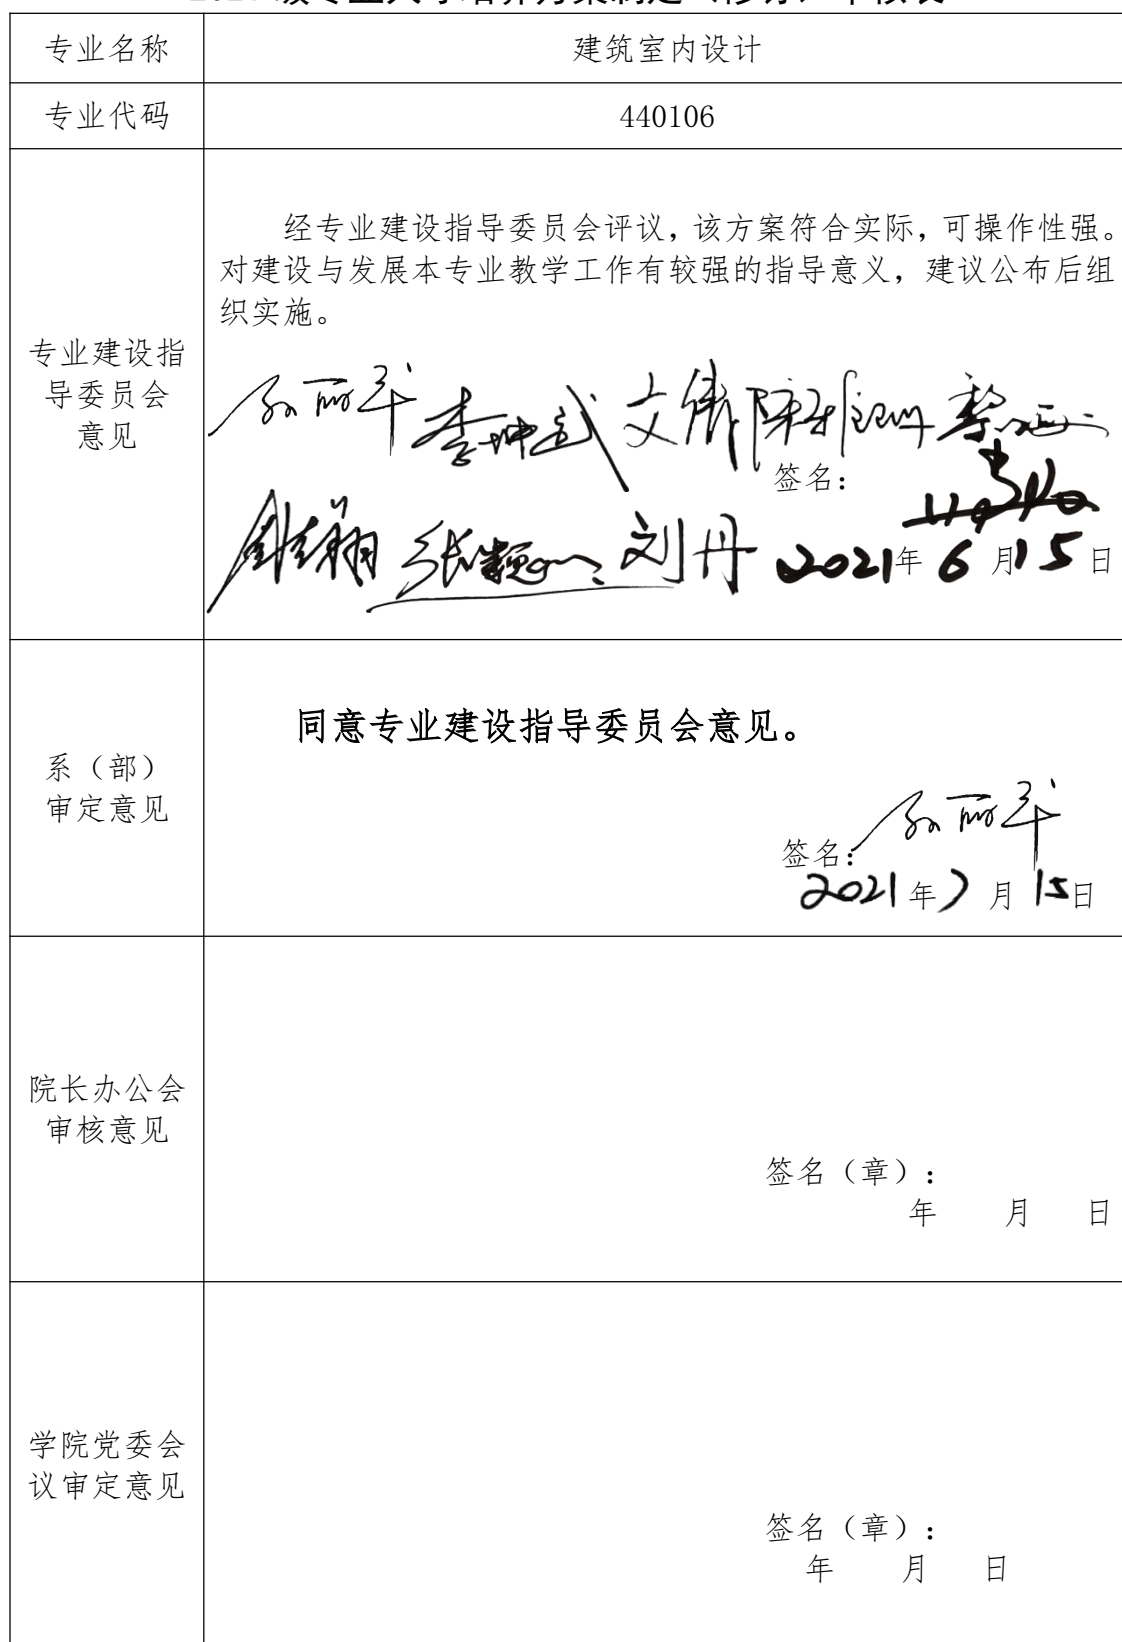 专业名称
建筑室内设计
专业代码
440106
专业建设指
导委员会
意见
经专业建设指导委员会评议，该方案符合实际，可操作性强。
对建设与发展本专业教学工作有较强的指导意义，建议公布后组
织实施。
李坤武 文伟
签名：
刘丹
2021年 6 月15日
系（部）
审定意见
同意专业建设指导委员会意见。
签名：
2021年7月15日
院长办公会
审核意见
签名（章）：
年 月 日
学院党委会
议审定意见
签名（章）：
年 月 日